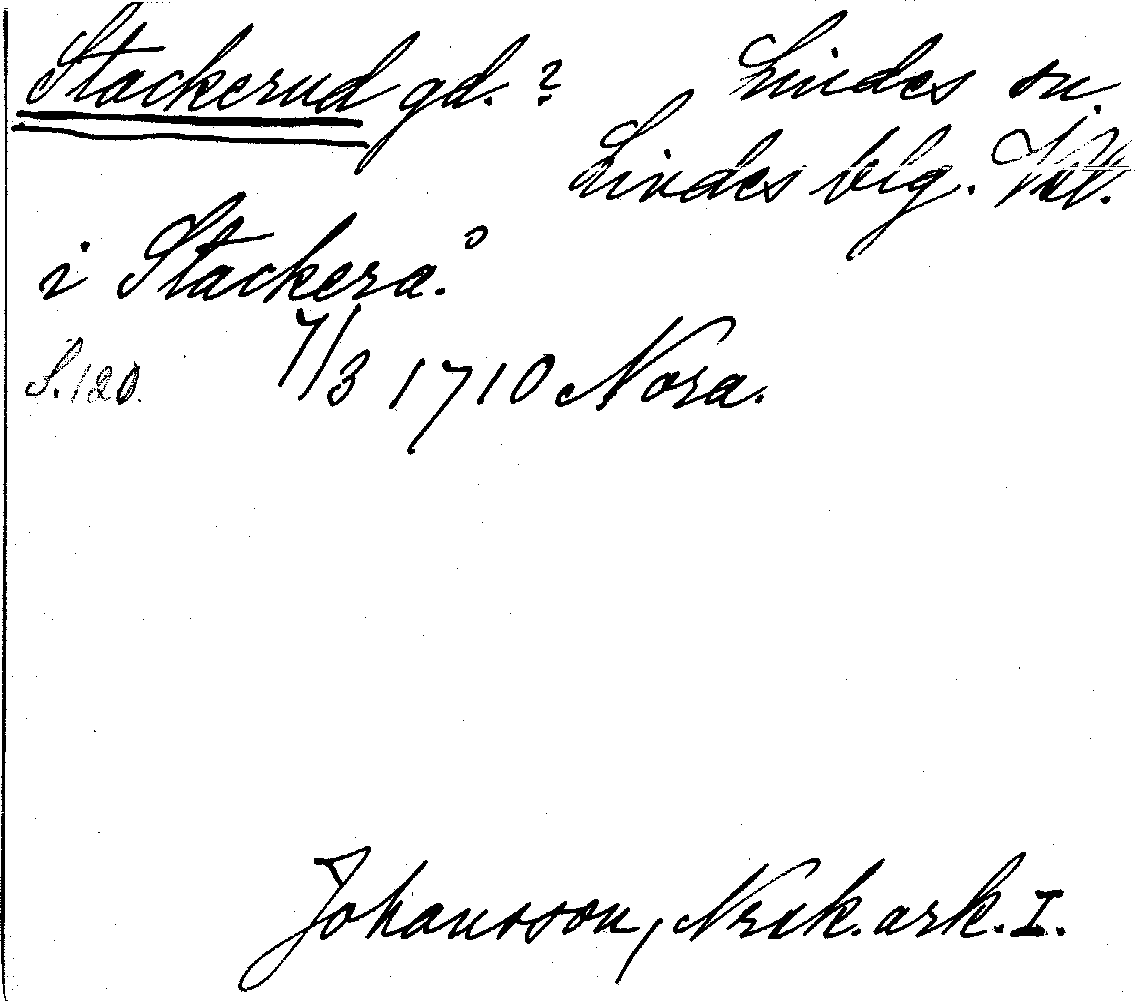 Stackerud gd. ? Lindes sn.
Lindes blg. Vstl.
i Stackerå.
S. 120. 7/3 1710 Nora.
Johansson, Nrik. ark. I.